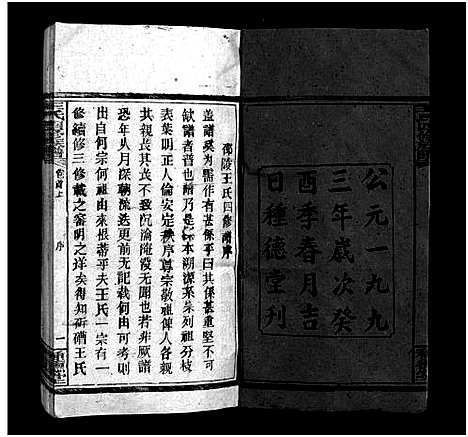 公元一九九
三年歲次癸
酉季春月吉
日種德堂刊
邵陵王氏四修譜序
蓋譜奚為而作有甚係乎曰其係甚重堅不可
缺譜者普也譜乃是係本溯源列祖分枝
表葉明正人倫安定秩序尊宗敬祖俾人各親
其親長其長不致沉淪淹沒無聞也若非賦譜
恐年久月深朝流迭更而無記載何由可考則
出自何宗何祖由來根蒂乎夫王氏一宗有一
修續修三修載之審明之詳矣得知昕碏王氏
卷首上
序
一